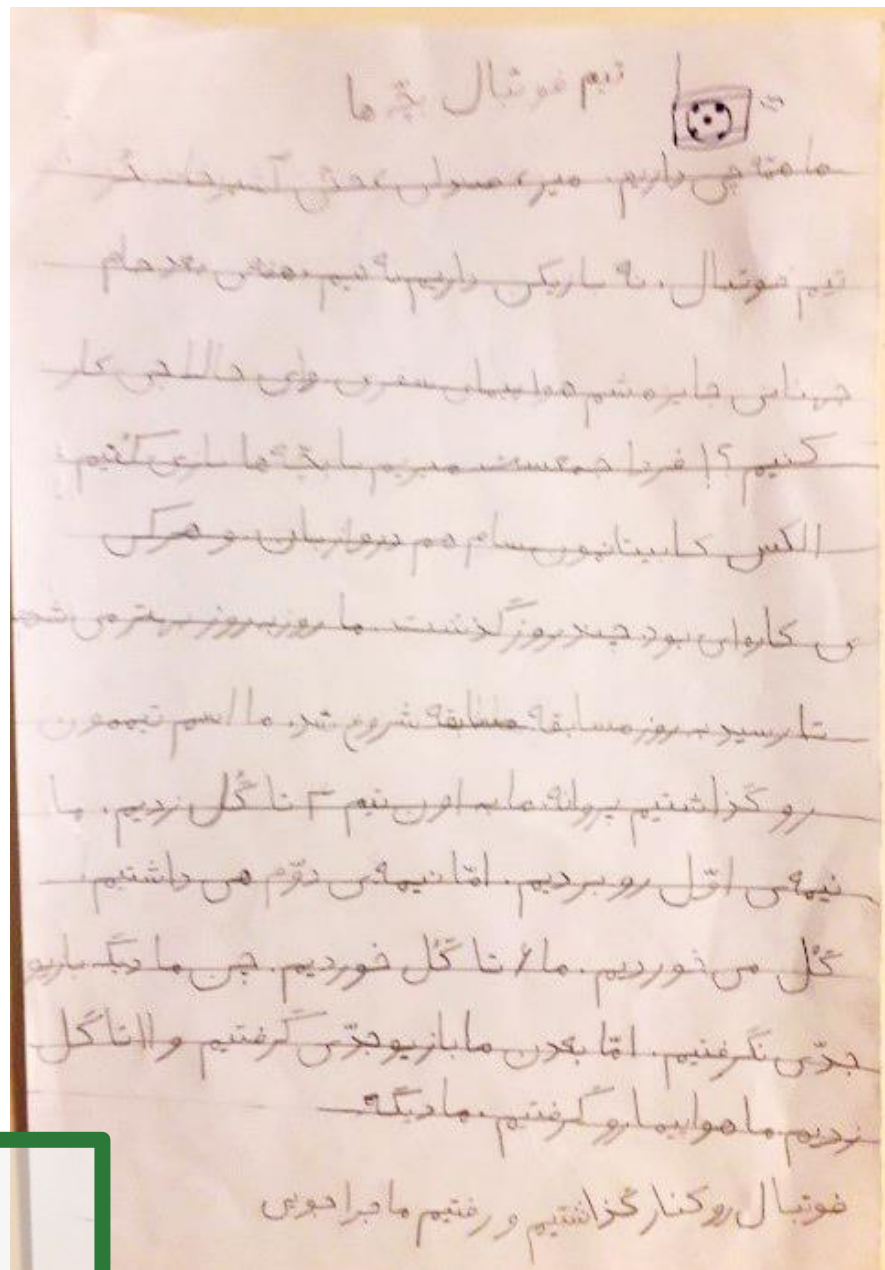 تیم فوتبال بچّه ها
ما همّه چی داریم. میز، صندلی، حتّی آشپزخانه
تیم فوتبال. نه بازیکن داریم نه تیم. بعد جام
جهانی جایزه شم هواپیمای سفری ولی حالا چی کار
کنیم؟! فردا جمعست میریم با بچّه ها بازی کنیم.
الکس کاپیتانمون سام هم دروازبان و هر کی
ی کاره‌ای بود چند روز گذشت ما روز به روز بهتر می شد
تا رسید به روز مسابقه مسابقه شروع شد. ما اسم تیممون
رو گذاشتیم پروانه. ما به اون تیم ۳ تا گُل زدیم. ما
نیمه‌ی اوّل رو بردیم. امّا نیمه‌ی دوّم هی داشتیم.
گُل می خوردیم. ما ۶ تا گُل خوردیم. چن ما دیگه بازیو
جدّی نگرفتیم. امّا بعدن ما بازیو جدّی گرفتیم و ۱۱ تا گل
زدیم. ما هواپیما رو گرفتیم. ما دیگه
فوتبال رو کنار گذاشتیم و رفتیم ماجراجویی